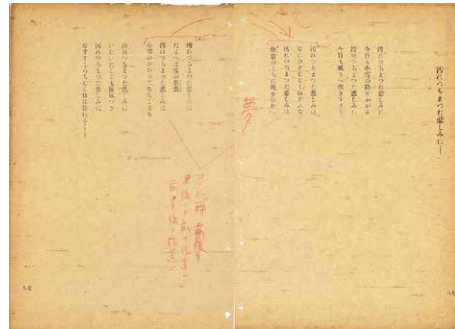 汚れつちまつた悲しみに……
汚れつちまつた悲しみに
今日も小雪の降りかかる
汚れつちまつた悲しみに
今日も風さへ吹きすぎる
汚れつちまつた悲しみは
たとへば狐の革裘
汚れつちまつた悲しみは
小雪のかかつてちぢこまる
汚れつちまつた悲しみは
なにのぞむなくねがふなく
汚れつちまつた悲しみは
倦怠のうちに死を夢む
汚れつちまつた悲しみに
いたいたしくも怖気づき
汚れつちまつた悲しみに
なすところもなく日は暮れる……
夢